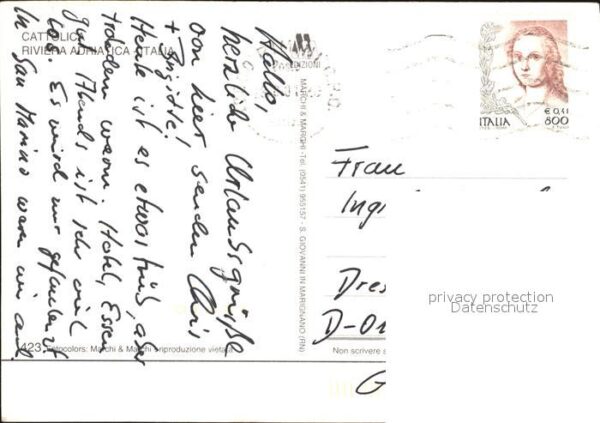 CATTOLICA
RIVIERA ADRIATICA - ITALIA
Hallo,
herzliche Urlaubsgrüße
von hier, senden Chris
+ Brigitte!
Heute ist es etwas trüb, aber
trotzdem warm. Hotel, Essen
gut. Abends ist sehr viel
los. Es wird nur gefaulenzt.
In San Marino waren wir auch
423 Fotocolors: Marchi & Marchi - riproduzione vietata
EDIZIONI
MARCHI & MARCHI - Tel. (0541) 955157 - S. GIOVANNI IN MARIGNANO (RN)
€ 0,41
ITALIA 800
Frau
Ingr
Dres
D-01
Non scrivere s
G
privacy protection
Datenschutz